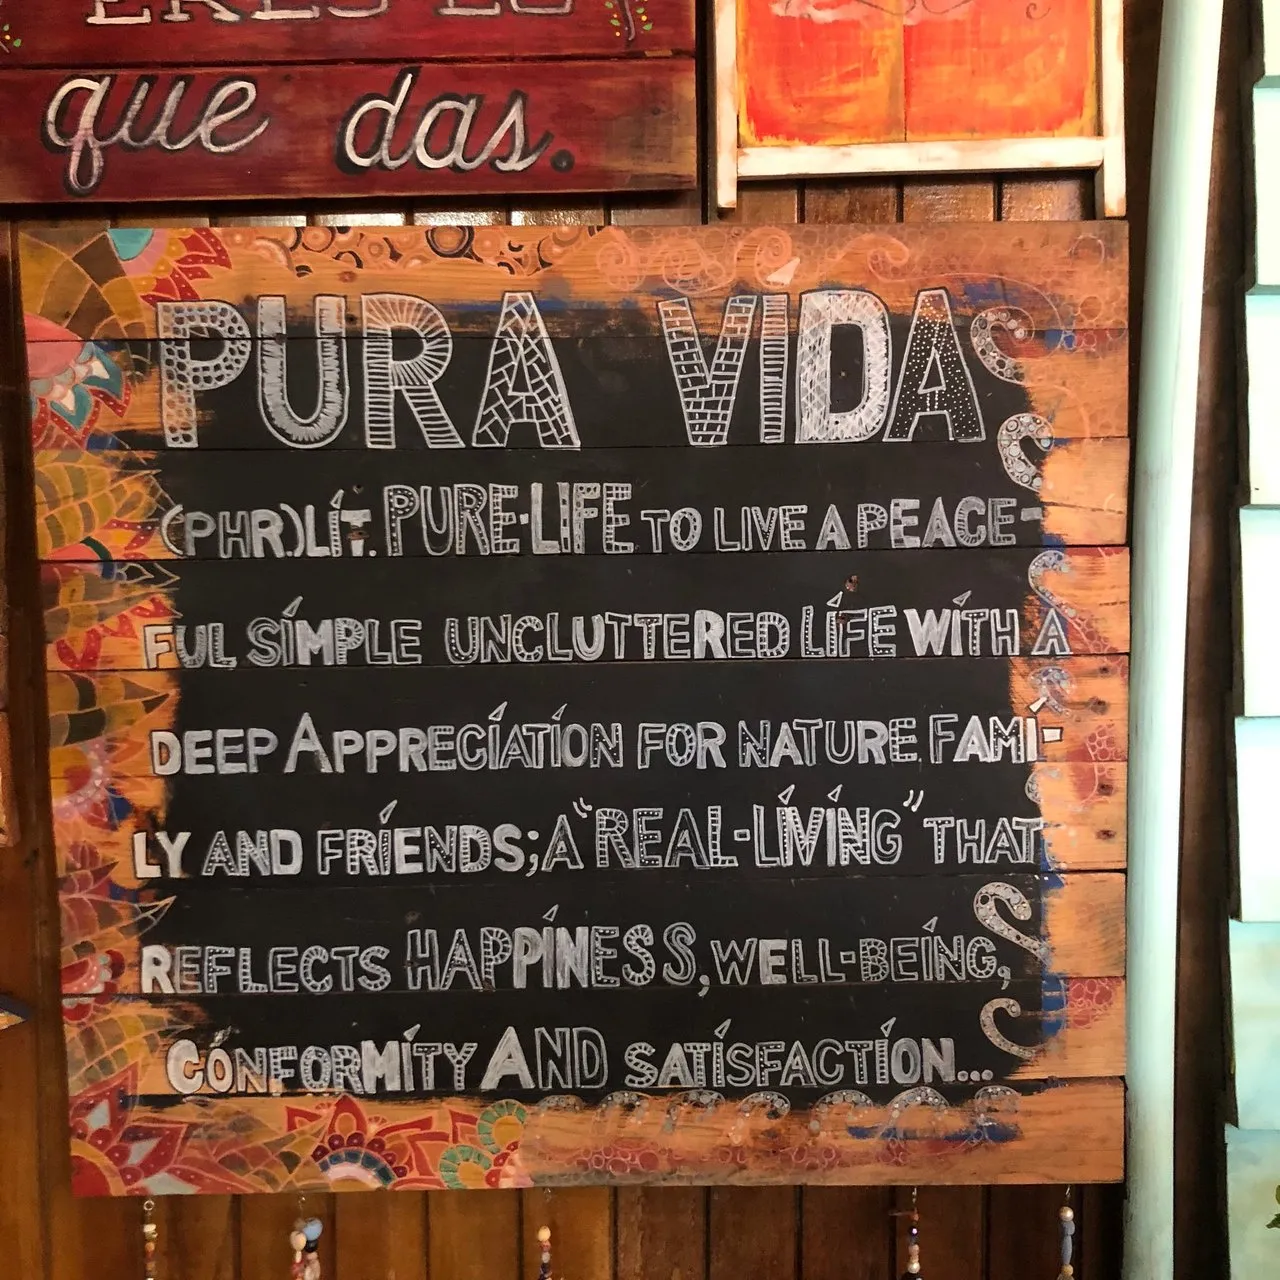 ERES LO
que das.
PURA VIDA
(PHR)LIT. PURE-LIFE TO LIVE A PEACE-
FUL SIMPLE UNCLUTTERED LIFE WITH A
DEEP APPRECIATION FOR NATURE FAMI-
LY AND FRIENDS; A "REAL-LIVING" THAT
REFLECTS HAPPINESS, WELL-BEING,
CONFORMITY AND SATISFACTION...